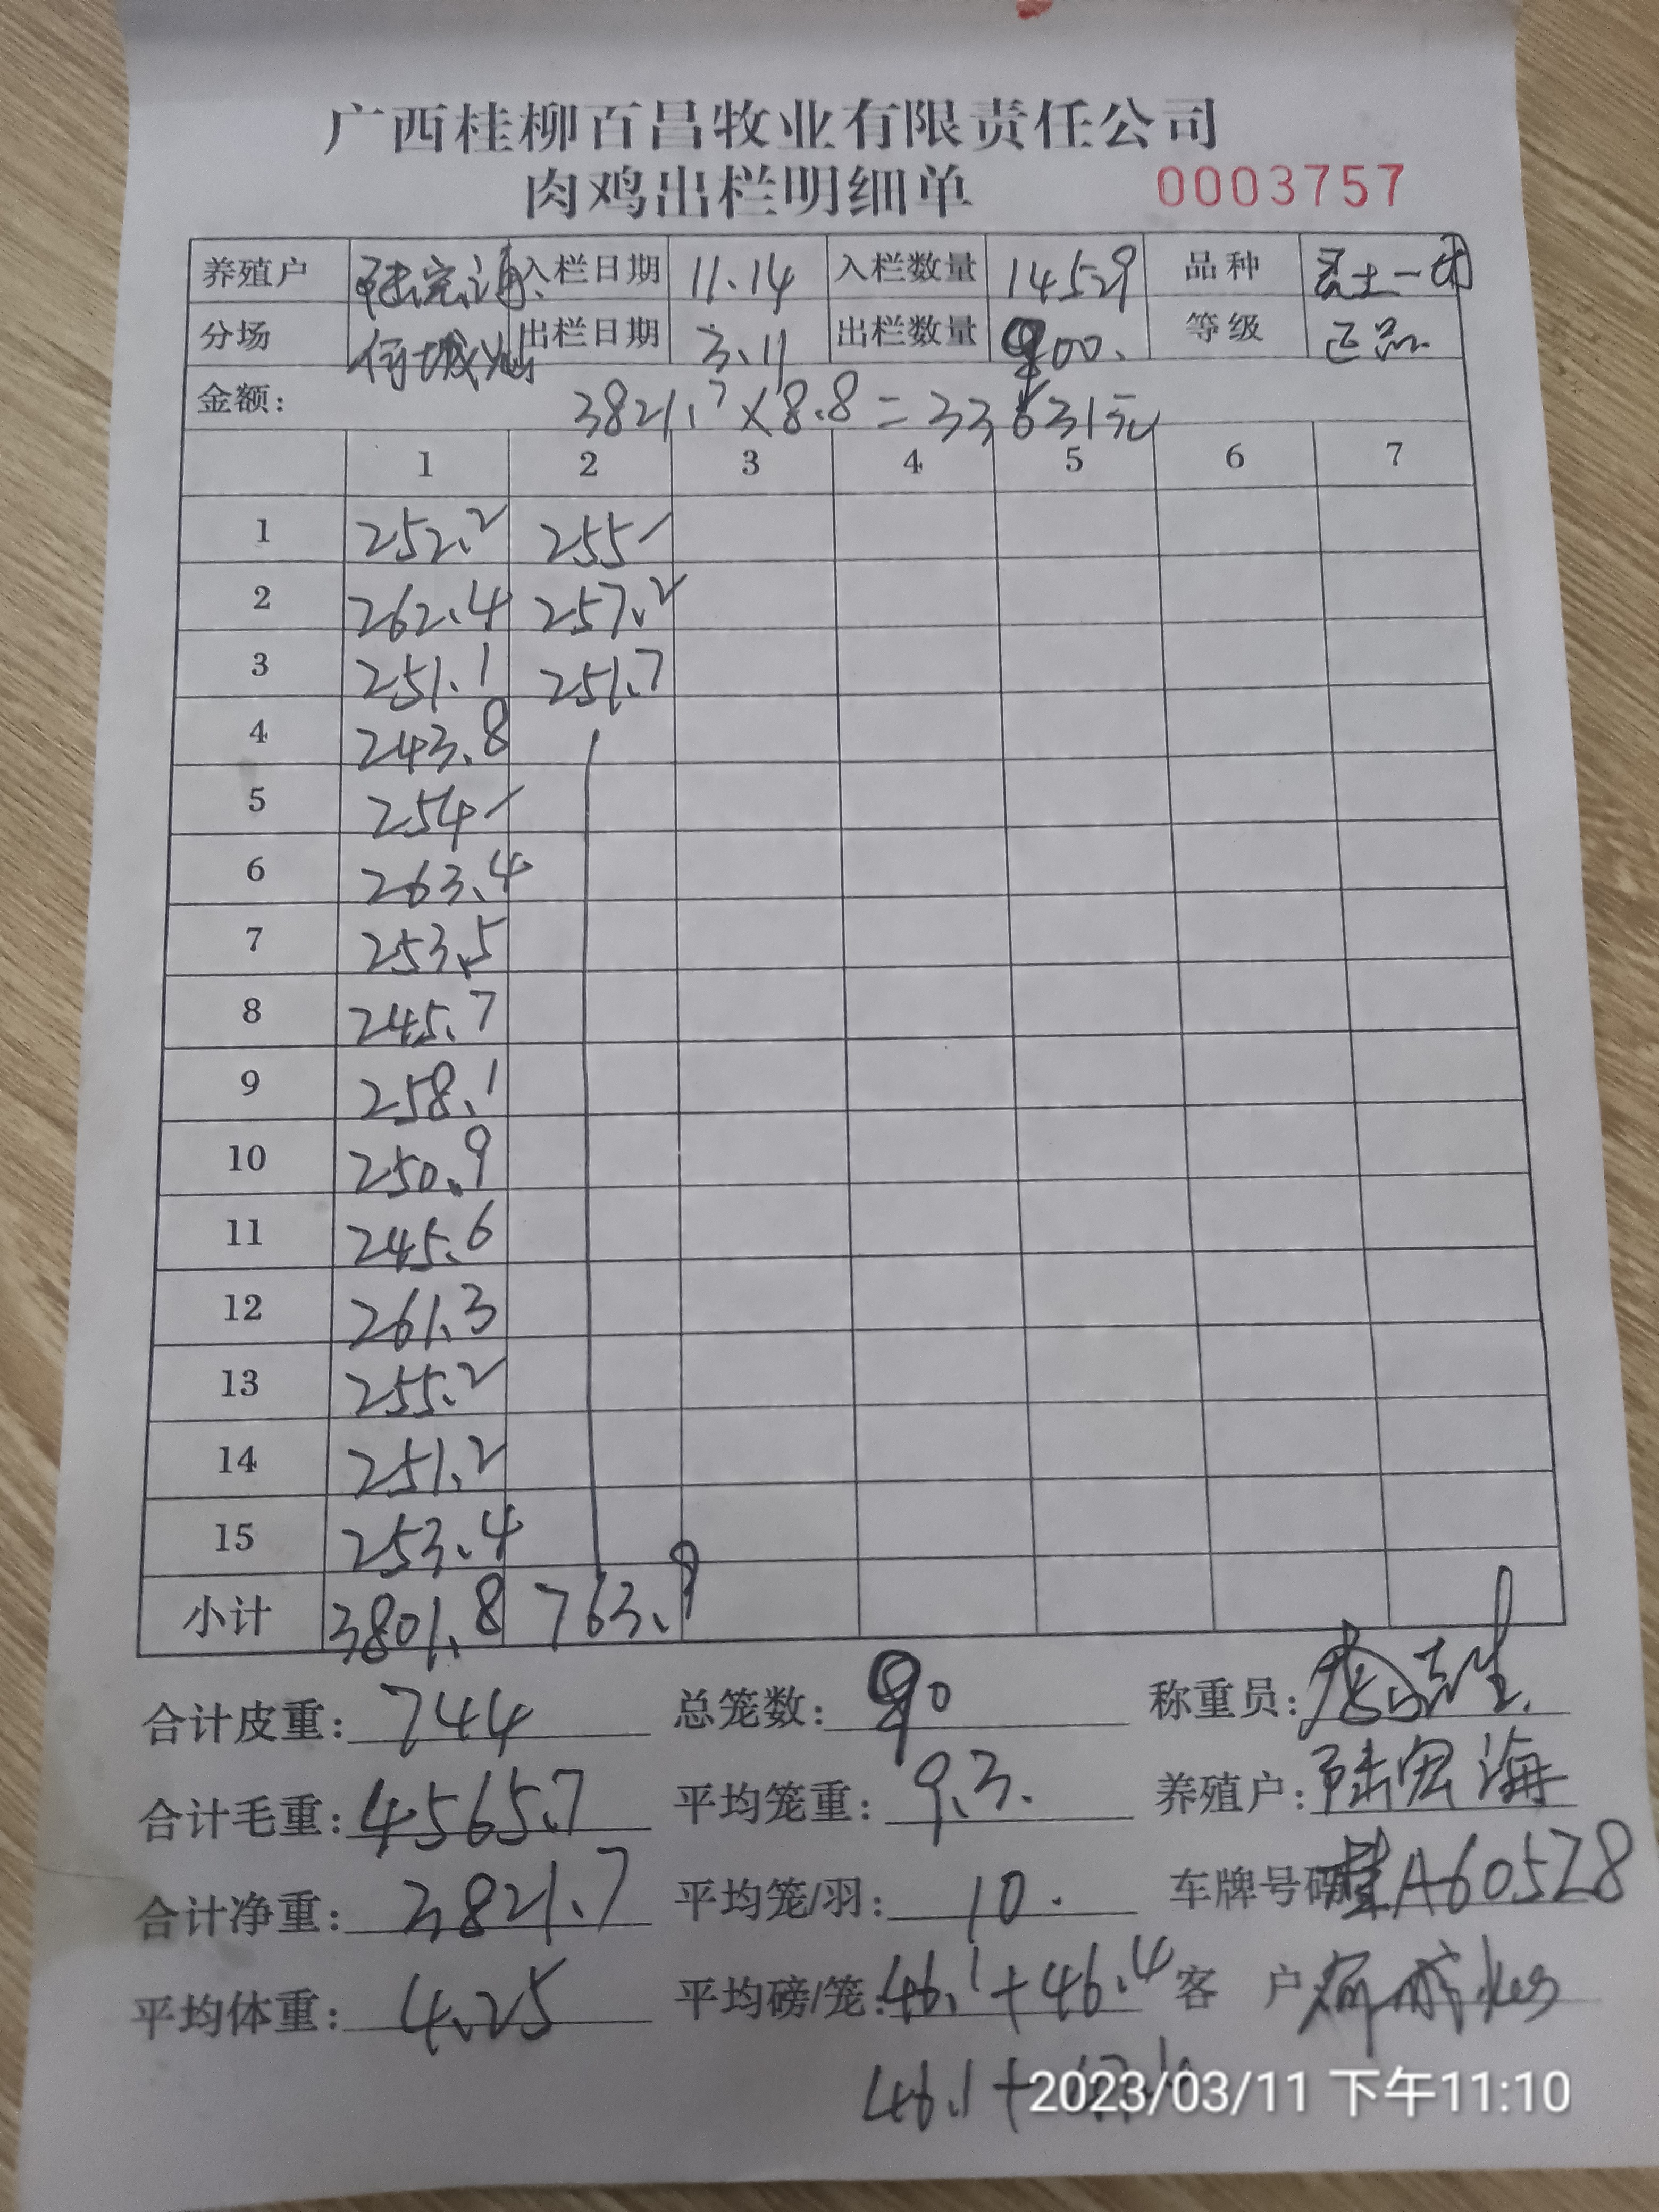 广西桂柳百昌牧业有限责任公司
肉鸡出栏明细单 0003757
养殖户 陆宏海 入栏日期 11.14 入栏数量 14529 品种 土一
分场 出栏日期 3.11 出栏数量 900. 等级 正品
金额: 3821.7×8.8=33631元
1 2 3 4 5 6 7
1 252.2 255
2 262.4 257.2
3 251.1 251.7
4 243.8
5 254
6 263.4
7 253.5
8 245.7
9 258.1
10 250.9
11 245.6
12 261.3
13 255.2
14 251.2
15 253.4
小计 3801.8 763.9
合计皮重: 744 总笼数: 90 称重员:
合计毛重: 4565.7 平均笼重: 9.3. 养殖户: 陆宏海
合计净重: 3821.7 平均笼/羽: 10. 车牌号码 桂A605Z8
平均体重: 4.25 平均磅/笼: 46.1+46.4 客 户
46.1+
2023/03/11 下午11:10